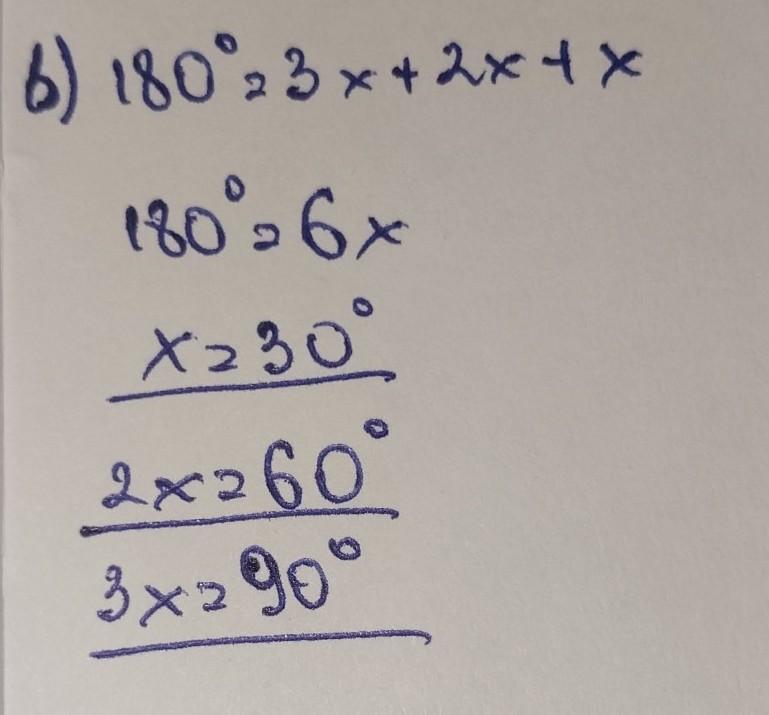 b) 180° = 3x + 2x + x
180° = 6x
x = 30°
2x = 60°
3x = 90°